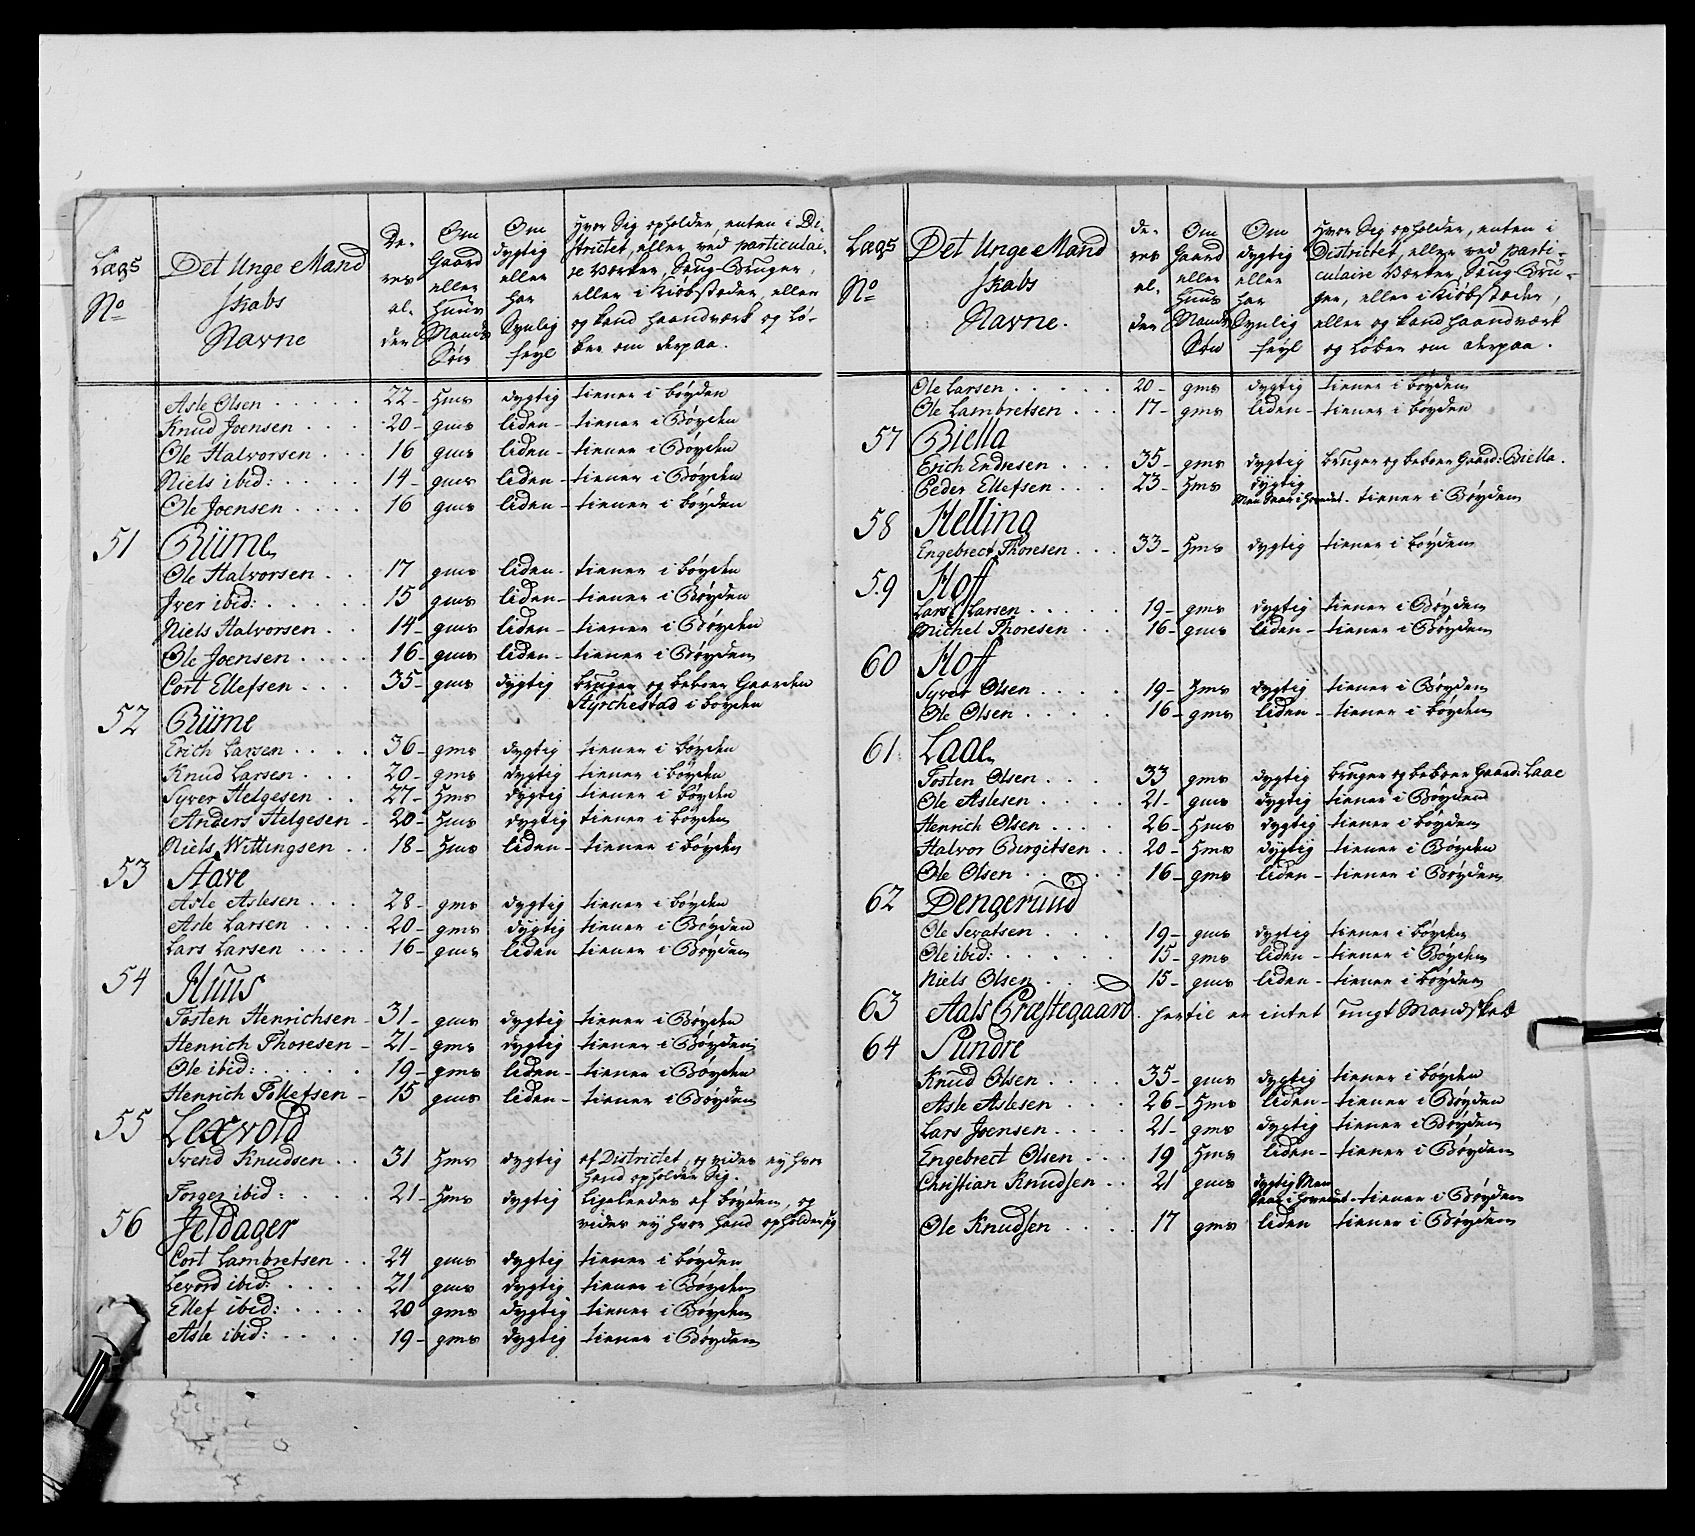 Lags
No
Det Unge Mand
skabs
Navne
De-
res
al-
der
Om
Gaard
eller
Huus
Mands
Søn
Om
dygtig
eller
har
Synlig
feyl
Hvor Sig opholder, enten i Di-
strictet, eller ved particulai-
re Værker, Saug-Bruger,
eller i Kiøbstæder, eller
og kand haandværk og Lø-
ber om derpaa.
Asle Olsen . . . . . 22- Hms dygtig tiener i bøyden
Knud Joensen . . . 20- gms liden- tiener i Bøyden
Ole Halvorsen . . . 16 gms liden- tiener i Bøyden
Niels ibid: . . . . 14- gms liden- tiener i Bøyden
Ole Joensen . . . . 16 gms liden- tiener i bøyden
51 Riime
Ole Halvorsen . . 17 gms liden- tiener i bøyden
Iver ibid: . . . . . 15 gms liden- tiener i Bøyden
Niels Halvorsen . . 14- gms liden- tiener i Bøyden
Ole Joensen . . . . 16- gms liden- tiener i Bøyden
Cort Ellefsen . . . 35- gms dygtig bruger og beboer Gaarden
Styrchestad i bøyden
52 Riime
Erich Larsen . . . . 36- gms dygtig tiener i bøyden
Knud Larsen . . . 20- gms dygtig tiener i bøyden
Syver Helgesen . . 27- Hms dygtig tiener i bøyden
Anders Helgesen - 20- Hms dygtig tiener i bøyden
Niels Wittingsen . . 18- Hms liden- tiener i bøyden
53 Aave
Asle Aslesen . . . 28- gms dygtig tiener i bøyden
Asle Larsen . . . . 20- gms dygtig tiener i Bøyden
Lars Larsen . . . . 16- gms liden tiener i Bøyden
54 Huus
Tosten Henrichsen - 31- gms dygtig tiener i Bøyden
Henrich Thoresen - 21- gms dygtig tiener i Bøyden
Ole ibid: . . . . . 19- gms liden- tiener i Bøyden
Henrich Tollefsen - 15 gms liden- tiener i Bøyden
55 Lexvold
Svend Knudsen . . 31 Hms dygtig af Districtet, og vides ey hvor
hand opholder Sig.
Torger ibid: . . . . 21- Hms dygtig ligeleedes af bøyden, og
vides ey hvor hand opholder sig
56 Jeldager
Cort Lambretsen . . 24 gms dygtig tiener i bøyden
Levord ibid: . . . . 21 gms dygtig tiener i Bøyden
Ellef ibid: . . . . 20 gms dygtig tiener i Bøyden
Asle ibid: . . . . 19- gms dygtig tiener i Bøyden
Lags
No
Det Unge Mand
skabs
Navne.
de-
res
al-
der
Om
Gaard
eller
Huus
Mands
Søn
Om
dygtig
eller
har
Synlig
feyl
Hvor Sig opholder, enten i
Districtet, eller ved parti-
culaire Værker, Saug-Bru-
ger, eller i Kiøbstæder,
eller og kand haandværk
og Løber om derpaa.
Ole Larsen . . . . . 20- gms dygtig tiener i bøyden
Ole Lambretsen . . . 17- gms liden- tiener i bøyden
57 Biella
Erich Endresen . . . 35- gms dygtig bruger og beboer Gaard: Biella.
Peder Ellefsen . . . 23- Hms dygtig
tiener i Bøyden
58 Helling
Engebrect Thoresen . . . 33- Hms dygtig tiener i bøyden
59 Hoff
Lars Larsen . . . . . 19- gms dygtig tiener i Bøyden
Michel Thoresen . . 16- gms liden- tiener i Bøyden
60 Hoff
Syver Olsen . . . . 19- Hms dygtig tiener i Bøyden
Ole Olsen . . . . 16- gms liden- tiener i bøyden
61 Laae
Tosten Olsen . . . . 33 gms dygtig bruger og beboer Gaard: Laae
Ole Aslesen . . . . 21- gms dygtig tiener i Bøyden
Henrich Olsen . . . . 26- Hms dygtig tiener i bøyden
Halvor Birgitsen . . 20- Hms dygtig tiener i Bøyden
Ole Olsen . . . . . 16- gms liden- tiener i Bøyden
62 Dengeruud
Ole Sevatsen . . . 19- gms dygtig tiener i bøyden
Ole ibid: . . . . . 15- gms liden- tiener i Bøyden
Niels Olsen . . . . 15- gms liden- tiener i bøyden
63 Aals Præstegaard. hertil er intet ungt Mandskab
64 Sundre
Knud Olsen . . . . 35- gms dygtig tiener i bøyden
Asle Aslesen . . . 26- Hms liden- tiener i Bøyden
Lars Joensen . . . . 21- gms dygtig tiener i Bøyden
Engebrect Olsen . . . 19 Hms liden- tiener i Bøyden
Christian Knudsen . . 21 gms dygtig Men
tiener i Bøyden
Ole Knudsen . . . . 17 gms liden tiener i Bøyden